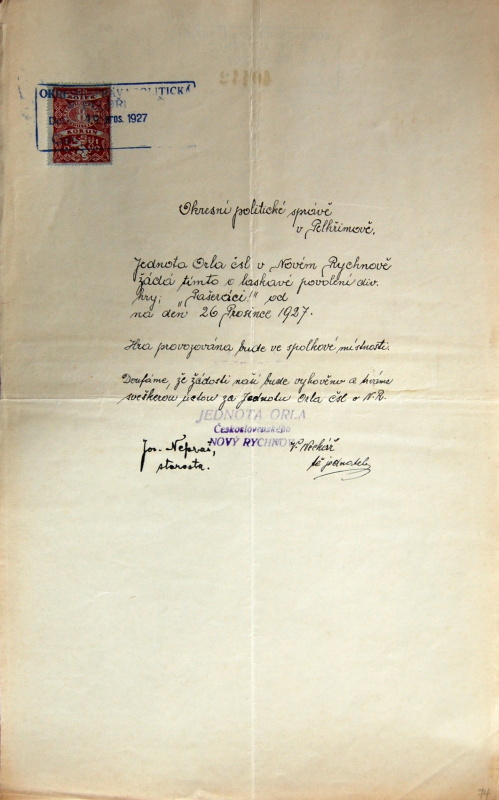 40112
OKRESNÍ SPRÁVA POLITICKÁ
pros. 1927
KORUN
Okresní politické správě
v Pelhřimově.
Jednota Orla čsl v Novém Rychnově
žádá tímto o laskavé povolení div.
hry; „Pašeráci!" od
na den 26 Prosince 1927.
Hra provozována bude ve spolkové místnosti.
Doufáme, že žádosti naší bude vyhověno a trváme
veškerou úctou za Jednotu Orla čsl v N.R.
JEDNOTA ORLA
Československého
NOVÝ RYCHNOV
Jos. Nepraš,
starosta.
jednatel
74